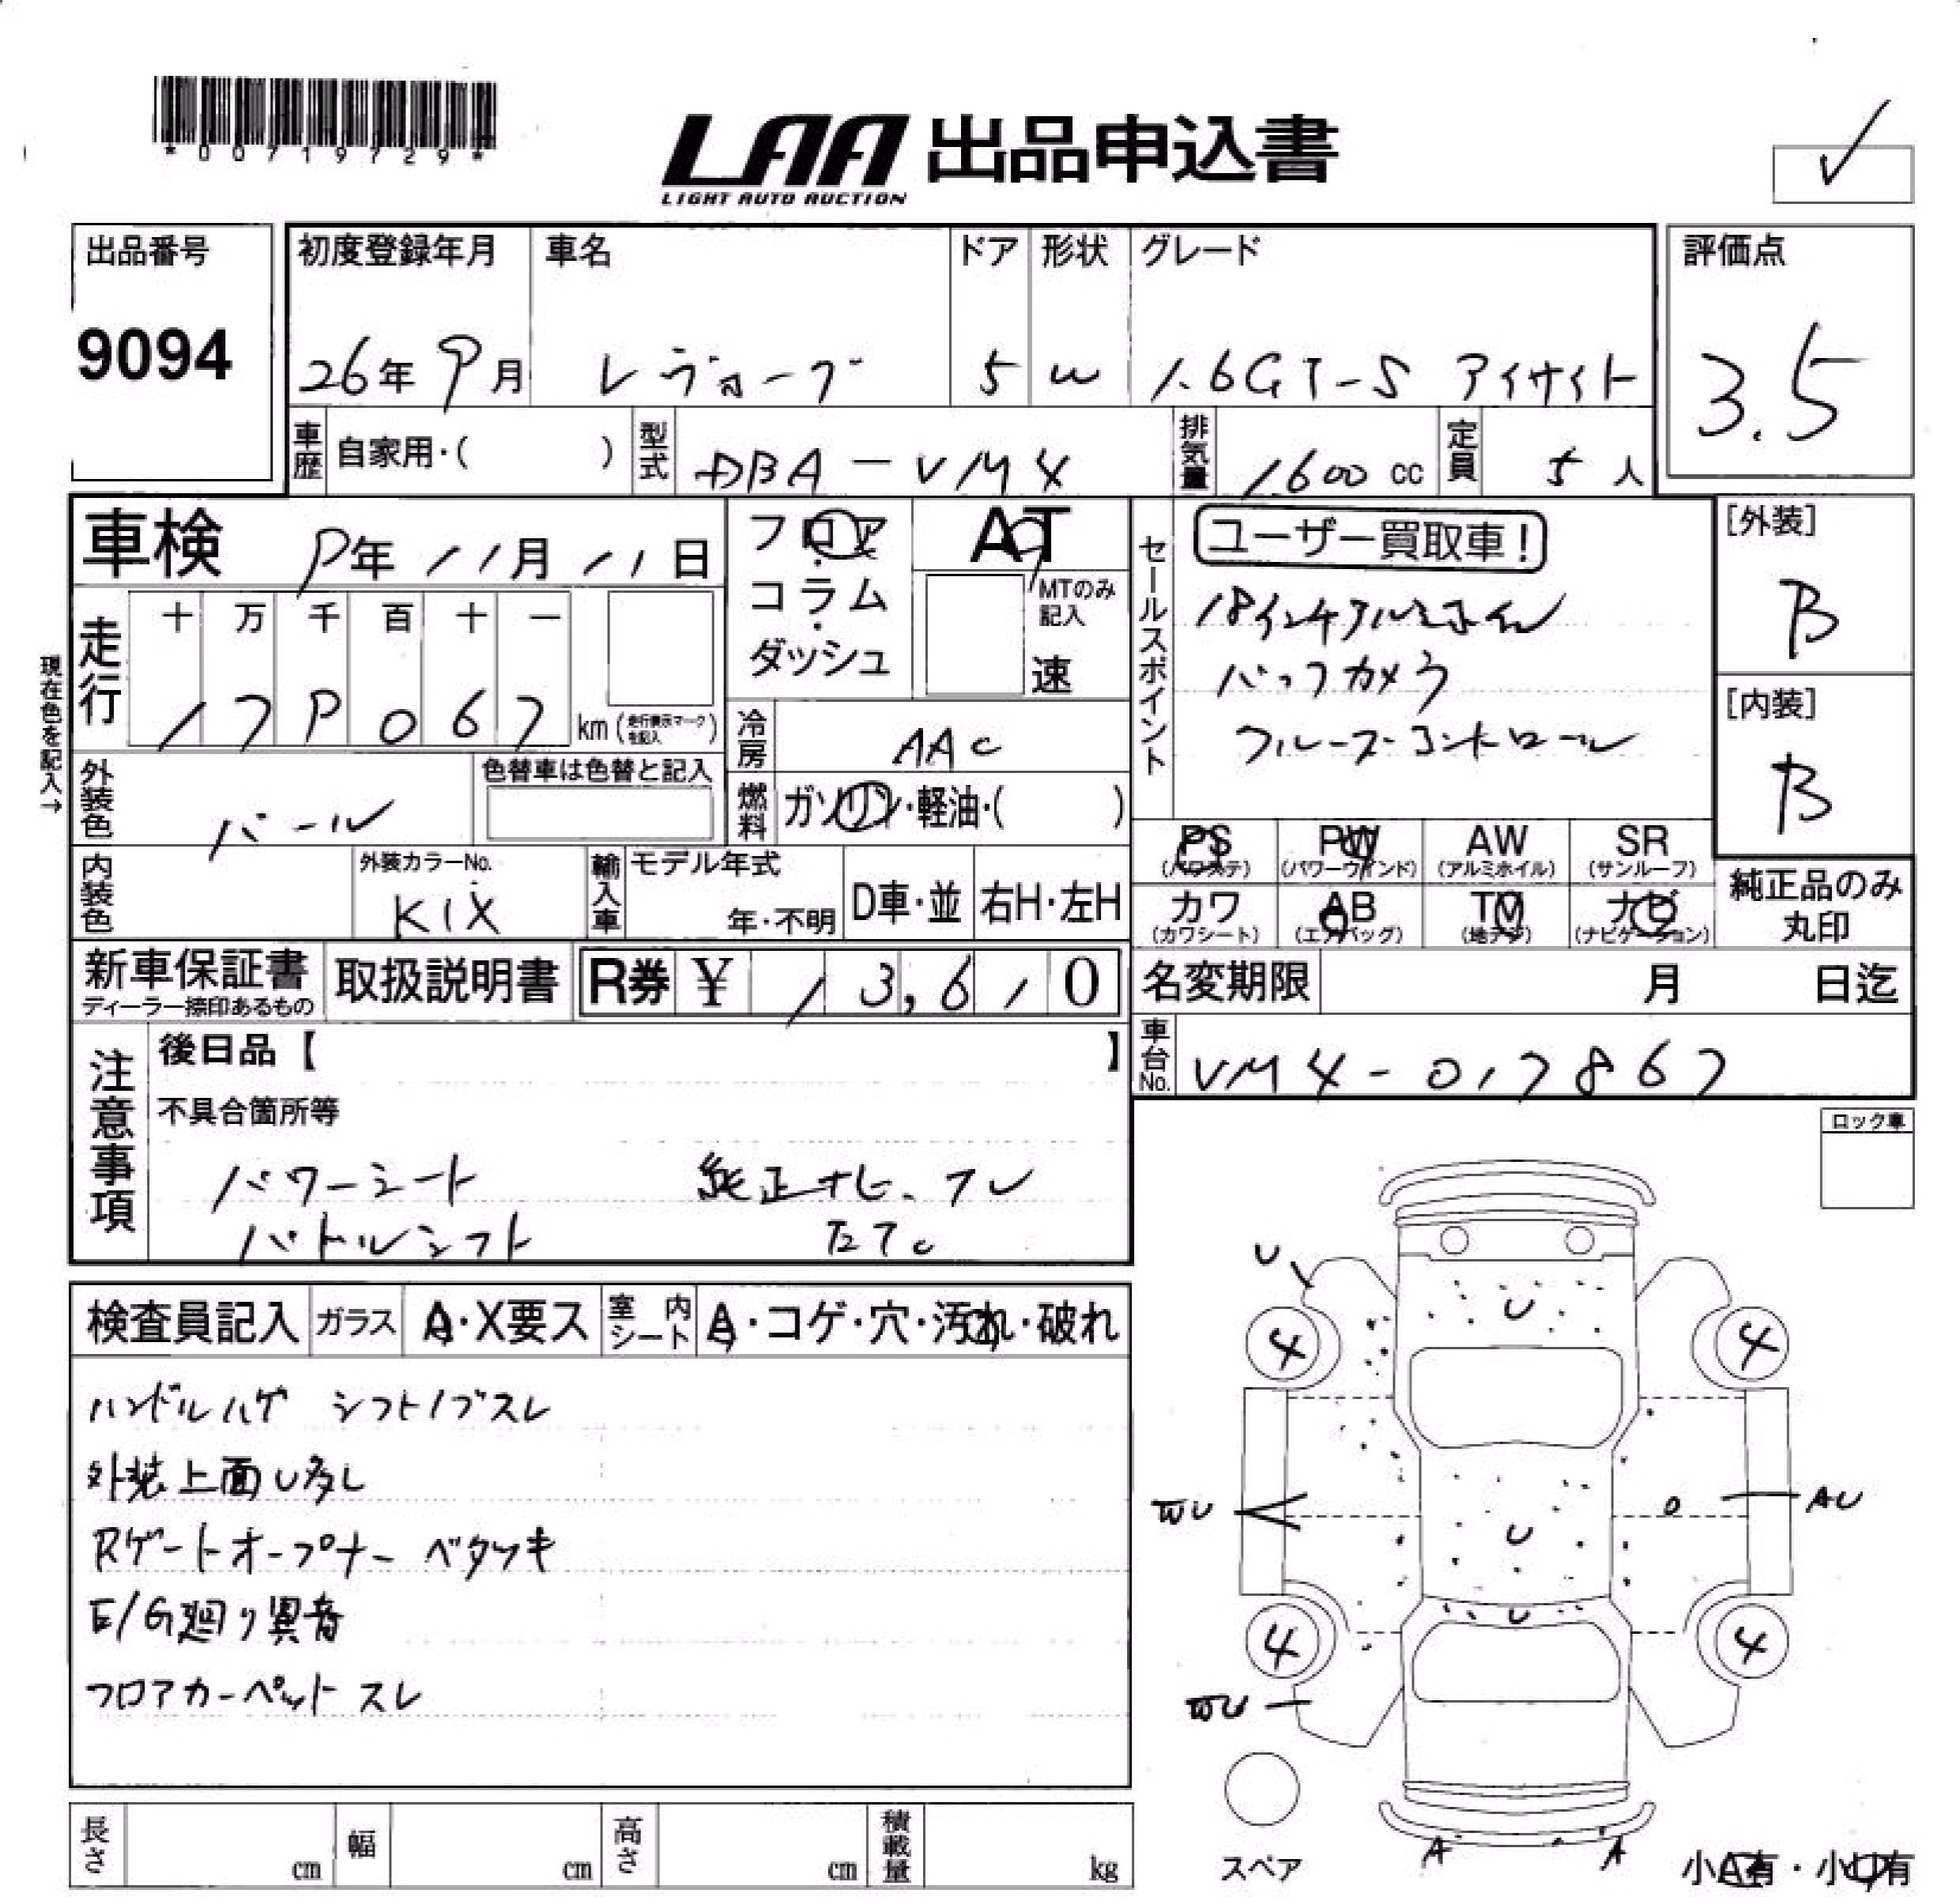 *00719729*
LAA 出品申込書
LIGHT AUTO AUCTION
出品番号
9094
初度登録年月
26年 9月
車名
レヴォーグ
ドア
5
形状
W
グレード
1.6GT-S アイサイト
評価点
3.5
車歴 自家用・( )
型式 DBA-VM4
排気量 1600 cc
定員 5 人
車検 9年 11月 11日
フロア・コラム・ダッシュ
AT
MTのみ記入
速
セールスポイント
ユーザー買取車!
18インチアルミホイル
バックカメラ
クルーズコントロール
[外装]
B
[内装]
B
現在色を記入→
走行
十 万 千 百 十 一
179067 km (走行表示マークを記入)
冷房 AAC
外装色 パール
色替車は色替と記入
燃料 ガソリン・軽油・( )
PS
(パワステ)
PW
(パワーウインド)
AW
(アルミホイル)
SR
(サンルーフ)
カワ
(カワシート)
AB
(エアバッグ)
TV
(地デジ)
ナビ
(ナビゲーション)
純正品のみ
丸印
内装色
外装カラーNo.
K1X
輸入車
モデル年式
年・不明
D車・並
右H・左H
新車保証書
ディーラー捺印あるもの
取扱説明書
R券 ¥ 13,610
名変期限 月 日迄
車台No. VM4-017867
注意事項
後日品【 】
不具合箇所等
パワーシート 純正ナビ、フレ
パドルシフト
ロック車
検査員記入
ガラス A・X要ス
室内シート A・コゲ・穴・汚れ・破れ
ハンドルハゲ シフトノブスレ
外装上面U多し
Rゲートオープナー ベタツキ
E/G廻り異音
フロアカーペットスレ
U
U
4
4
WU
U
AU
U
4
4
WU
スペア
A
A
小A有・小U有
長さ cm
幅 cm
高さ cm
積載量 kg